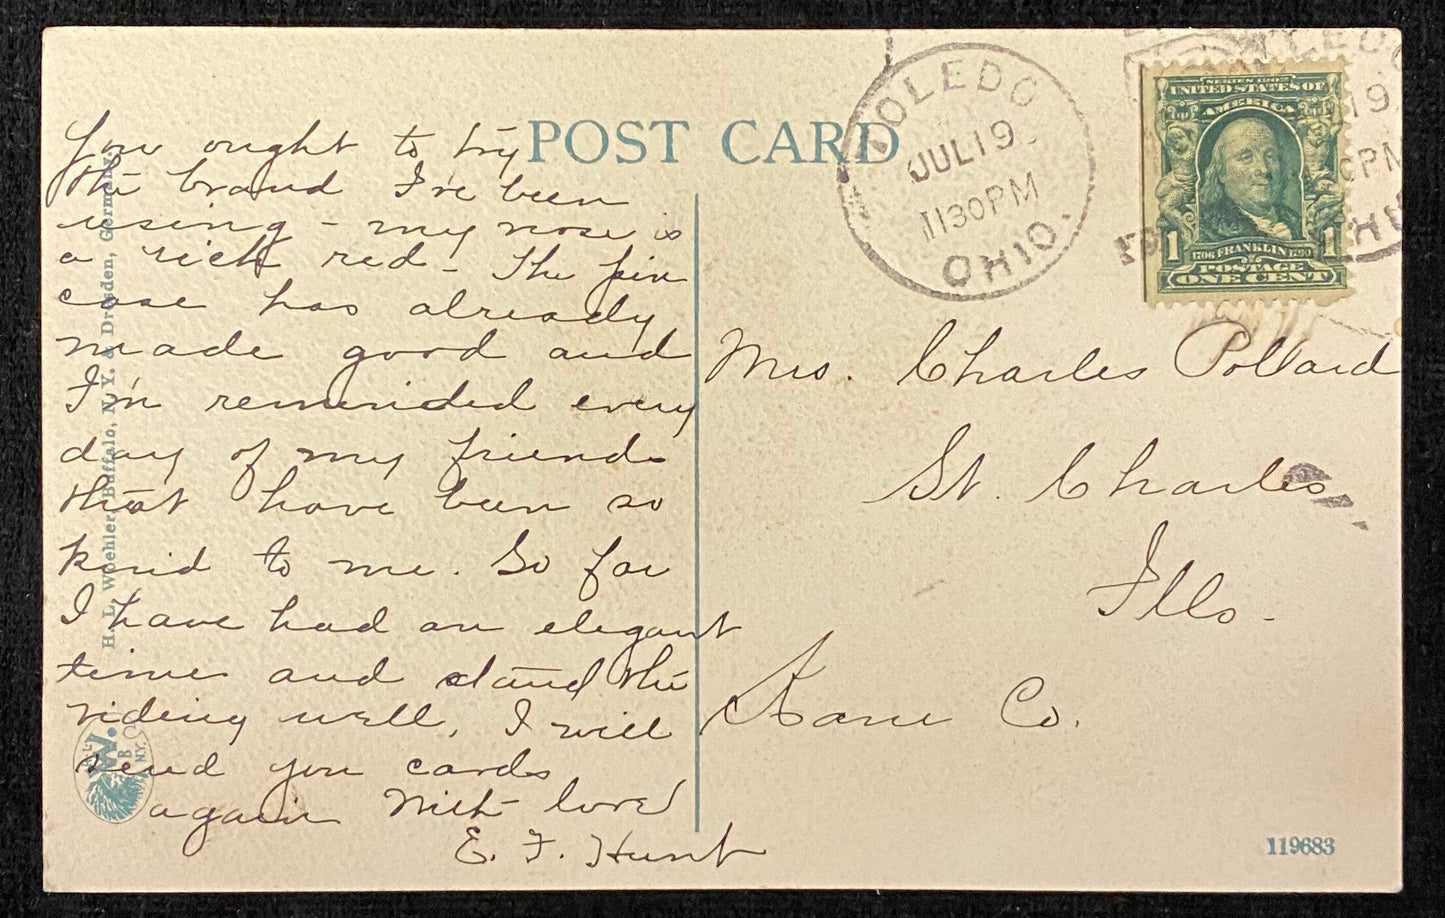 POST CARD
You ought to try
the brand I've been
using - my nose is
a rich red - The pin
case has already
made good and
I'm reminded every
day of my friends
that have been so
kind to me. So far
I have had an elegant
time and stand the
riding well. I will
send you cards
again With love
E. F. Hunt
H. L. Woehler, Buffalo, N. Y. & Dresden, Germany.
TOLEDO
JUL 19
1130 PM
OHIO.
SERIES 1902
UNITED STATES OF
AMERICA
1 FRANKLIN 1
1706 1790
POSTAGE
ONE CENT
Mrs. Charles Pollard
St. Charles
Ills -
Kane Co.
119683